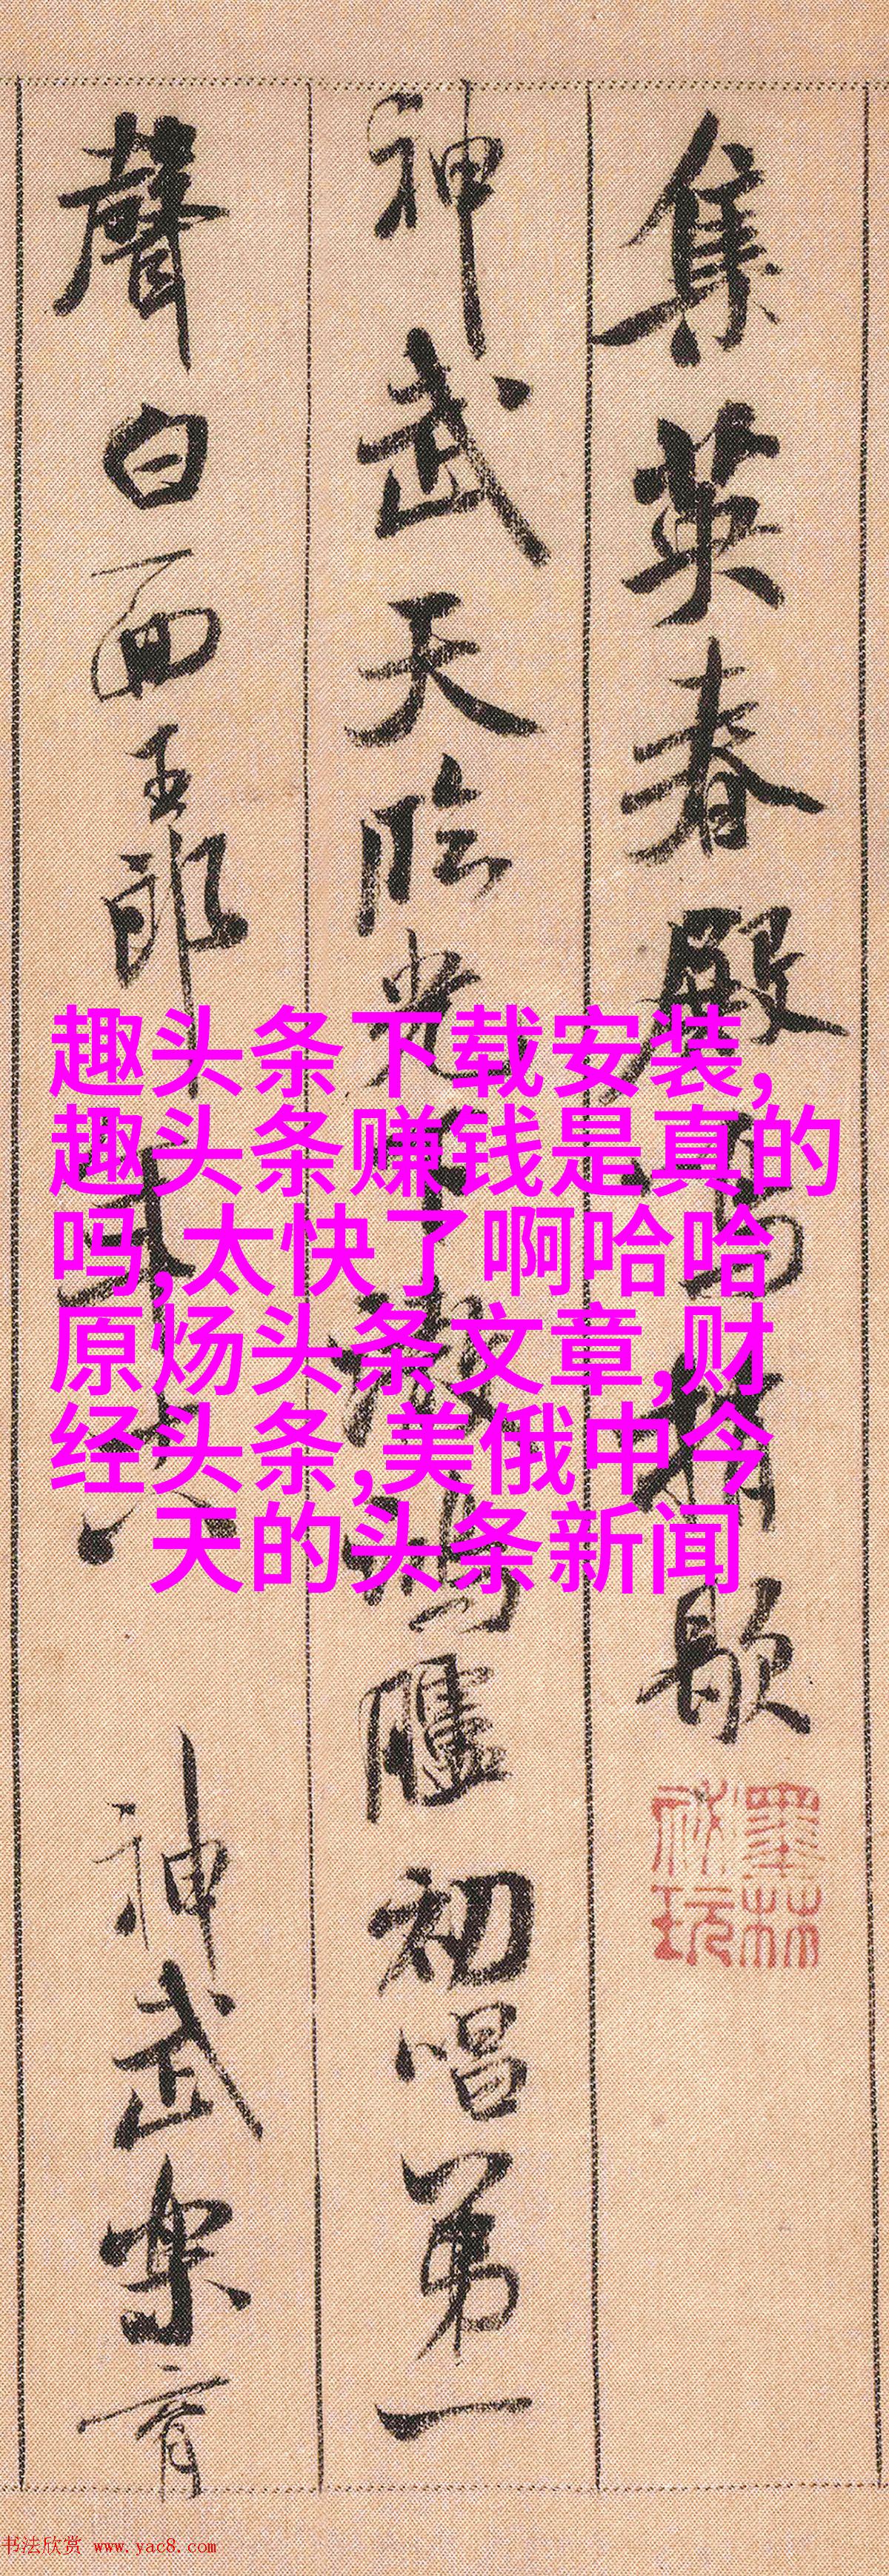 集英春殿鳴捎歇
神武天臨光下澈鴻臚初唱第一
聲白面玉郎年十八 神武樂育
墨林
祕玩
趣头条下载安装,
趣头条赚钱是真的
吗,太快了啊哈哈
原炀头条文章,财
经头条,美俄中今
天的头条新闻
书法欣赏 www.yac8.com